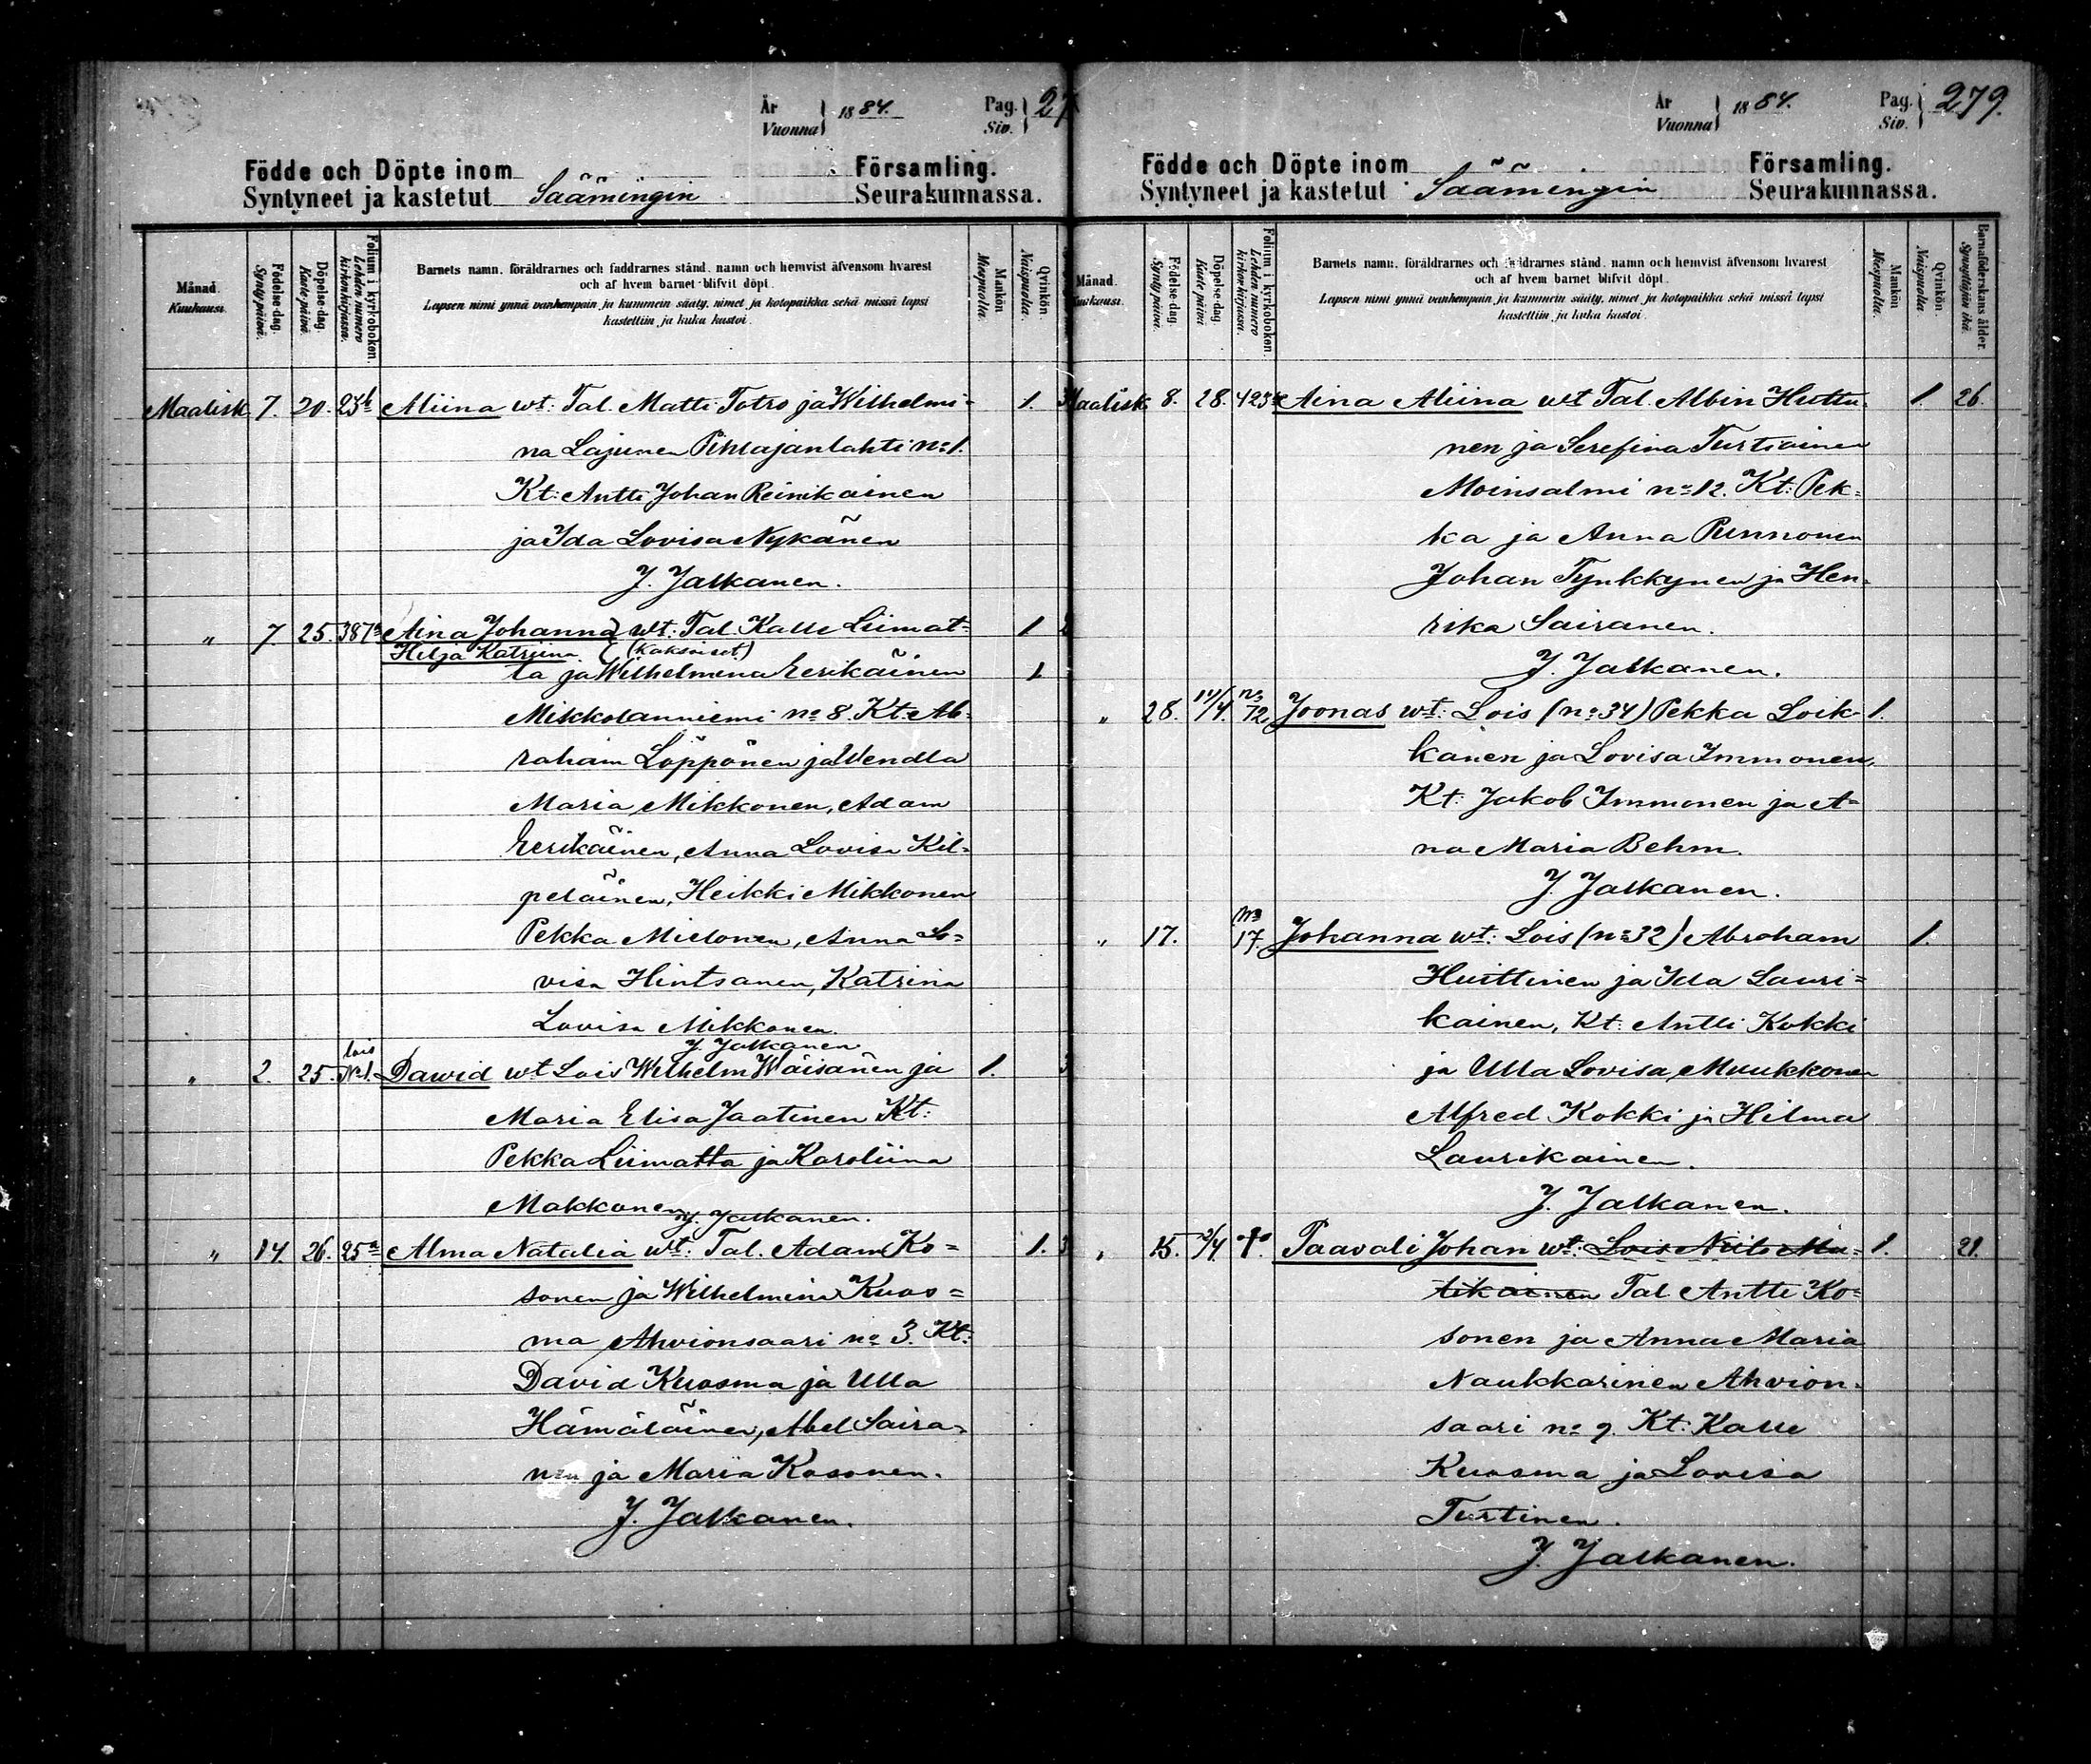 År
Vuonna 1884.
Pag.
Siv. 27
Födde och Döpte inom Församling.
Syntyneet ja kastetut Säämingin Seurakunnassa.
Månad.
Kuukausi.
Födelse-dag.
Synty päivä.
Döpelse-dag.
Kaste-päivä.
Folium i kyrkoboken.
Lehden numero kirkonkirjassa.
Barnets namn, föräldrarnes och faddrarnes stånd, namn och hemvist äfvensom hvarest
och af hvem barnet blifvit döpt.
Lapsen nimi ynnä vanhempain ja kummein sääty, nimet ja kotopaikka sekä missä lapsi
kastettiin ja kuka kastoi.
Mankön
Miespuolia.
Qvinkön.
Naispuolia.
Maalisk 7. 20. 23b Aliina wt: Tal. Matti Totro ja Wilhelmi- 1.
na Lajunen Pihlajanlahti No 1.
Kt: Antti Johan Reinikainen
ja Ida Lovisa Nykänen
J. Jalkanen.
" 7. 25. 387a Aina Johanna wt: Tal. Kalle Liimat- 1
Hilja Katriina (Kaksoiset)
ta ja Wilhelmena Eerikäinen 1
Mikkolanniemi no 8. Kt: Ab-
raham Löppönen ja Wendla
Maria Mikkonen, Adam
Eerikäinen, Anna Lovisa Kil-
peläinen, Heikki Mikkonen
Pekka Mielonen, Anna Lo-
visa Hintsanen, Katrina
Lovisa Mikkonen.
J. Jalkanen
" 2. 25. lois No 1. Dawid wt Lois Wilhelm Wäisänen ja 1.
Maria Elisa Jaatinen Kt:
Pekka Liimatta ja Karoliina
Makkonen J. Jalkanen.
" 14. 26. 25a Alma Natalia wt: Tal. Adam Ko= 1.
sonen ja Wilhelmina Kuos=
ma Ahvionsaari no 3. Kt:
David Kuosma ja Ulla
Hämäläinen, Abel Saira-
nen ja Maria Kosonen.
J. Jalkanen.
År
Vuonna 1884.
Pag.
Siv. 279.
Födde och Döpte inom Församling.
Syntyneet ja kastetut Säämingin Seurakunnassa.
Månad.
Kuukausi.
Födelse-dag.
Synty päivä.
Döpelse-dag.
Kaste-päivä
Folium i kyrkoboken.
Lehden numero kirkonkirjassa.
Barnets namn, föräldrarnes och faddrarnes stånd, namn och hemvist äfvensom hvarest
och af hvem barnet blifvit döpt.
Lapsen nimi ynnä vanhempain ja kummein sääty, nimet ja kotopaikka sekä missä lapsi
kastettiin ja kuka kastoi.
Mankön
Miespuolia.
Qvinkön.
Naispuolia.
Barnaföderskans ålder.
Synnyttäjän ikä.
Maalisk 8. 28. 423 Aina Aliina wt Tal. Albin Huttu- 1. 26.
nen ja Serefina Turtiainen
Moinsalmi no 12. Kt: Pek-
ka ja Anna Punnonen
Johan Tynkkynen ja Hen-
rika Sairanen.
J. Jalkanen.
" 28. 14/4. No 72 Joonas wt: Lois (no 34) Pekka Loik- 1.
kanen ja Lovisa Immonen,
Kt: Jakob Immonen ja A-
na Maria Behm.
J. Jalkanen.
" 17. No 17. Johanna wt: Lois (no 32) Abraham 1.
Huittinen ja Ida Lauri=
kainen, Kt: Antti Kokki
ja Ulla Lovisa Muukkonen
Alfred Kokki ja Hilma
Laurikainen.
J. Jalkanen.
" 15. Paavali Johan wt: Lois Niilo Mu= 1. 21.
tikainen Tal Antti Ko=
sonen ja Anna Maria
Naukkarinen Ahvion-
saari no 9. Kt: Kalle
Kuosma ja Lovisa
Turtinen.
J. Jalkanen.